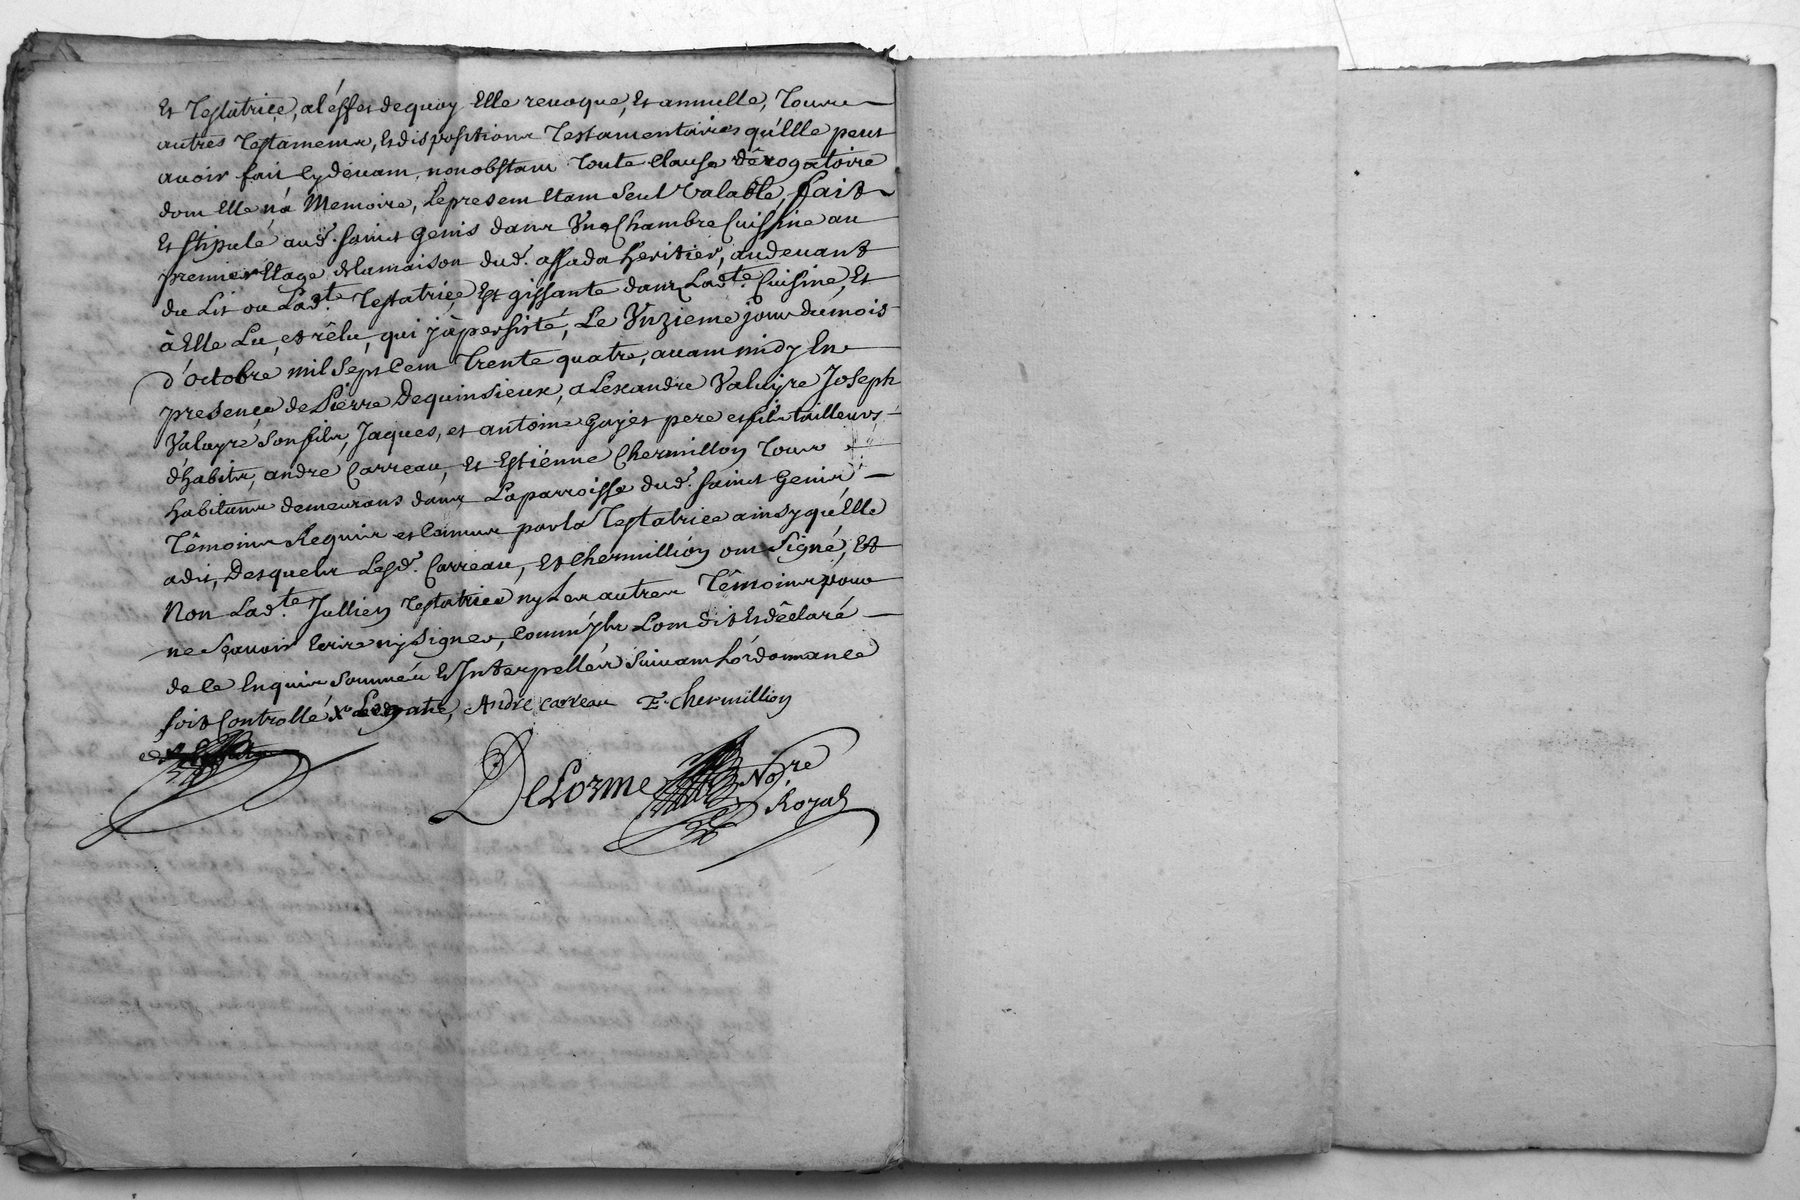 Et Testatrice, al'éffet dequoy Elle revoque, Et annulle, Tous
autres Testamens, Et dispositions Testamentaires qu'Elle peut
avoir fait Cy devant nonobstant Toute Clause dêrogatoire
dont Elle n'a Memoire, Le present Etant Seul Valable, fait
Et Stipulé aud. saint Genis dans Une Chambre Cuissine au
premier Etage de la maison dud. assada heritier, au devant
du Lit ou Lad.te Testatrice Est gissante dans Lad.te Cuisine, Et
à Elle Lu, et rêlu, qui j'à persisté, Le Unzieme jour du mois
d'octobre mil Sept Cent Trente quatre, avant midy En
presence de Pierre Dequinsieux, aLexandre Valayre Joseph
Valayre Son fils, Jaques, et antoine Gayet pere et fils tailleurs
d'habits, andre Carreau, Et Estiénne Chermillon Tous
habitans demeurans dans La parroisse dud. saint Genis
Têmoins Requis et Connus par la Testatrice ainsy qu'Elle
a dit, Desquels Lesd. Carreau, Et Chermillion ont Signé, Et
Non Lad.te Jullien Testatrice ny Les autres Têmoins pour
ne Sçavoir Ecrire ny Signer, Comm'yls L'ont dit Et dêclaré
de ce Enquis Sommés Et Interpellés Suivant L'órdonnance
soit Controllé André carreau E. Chermillion
DeLorme No.re
Royal